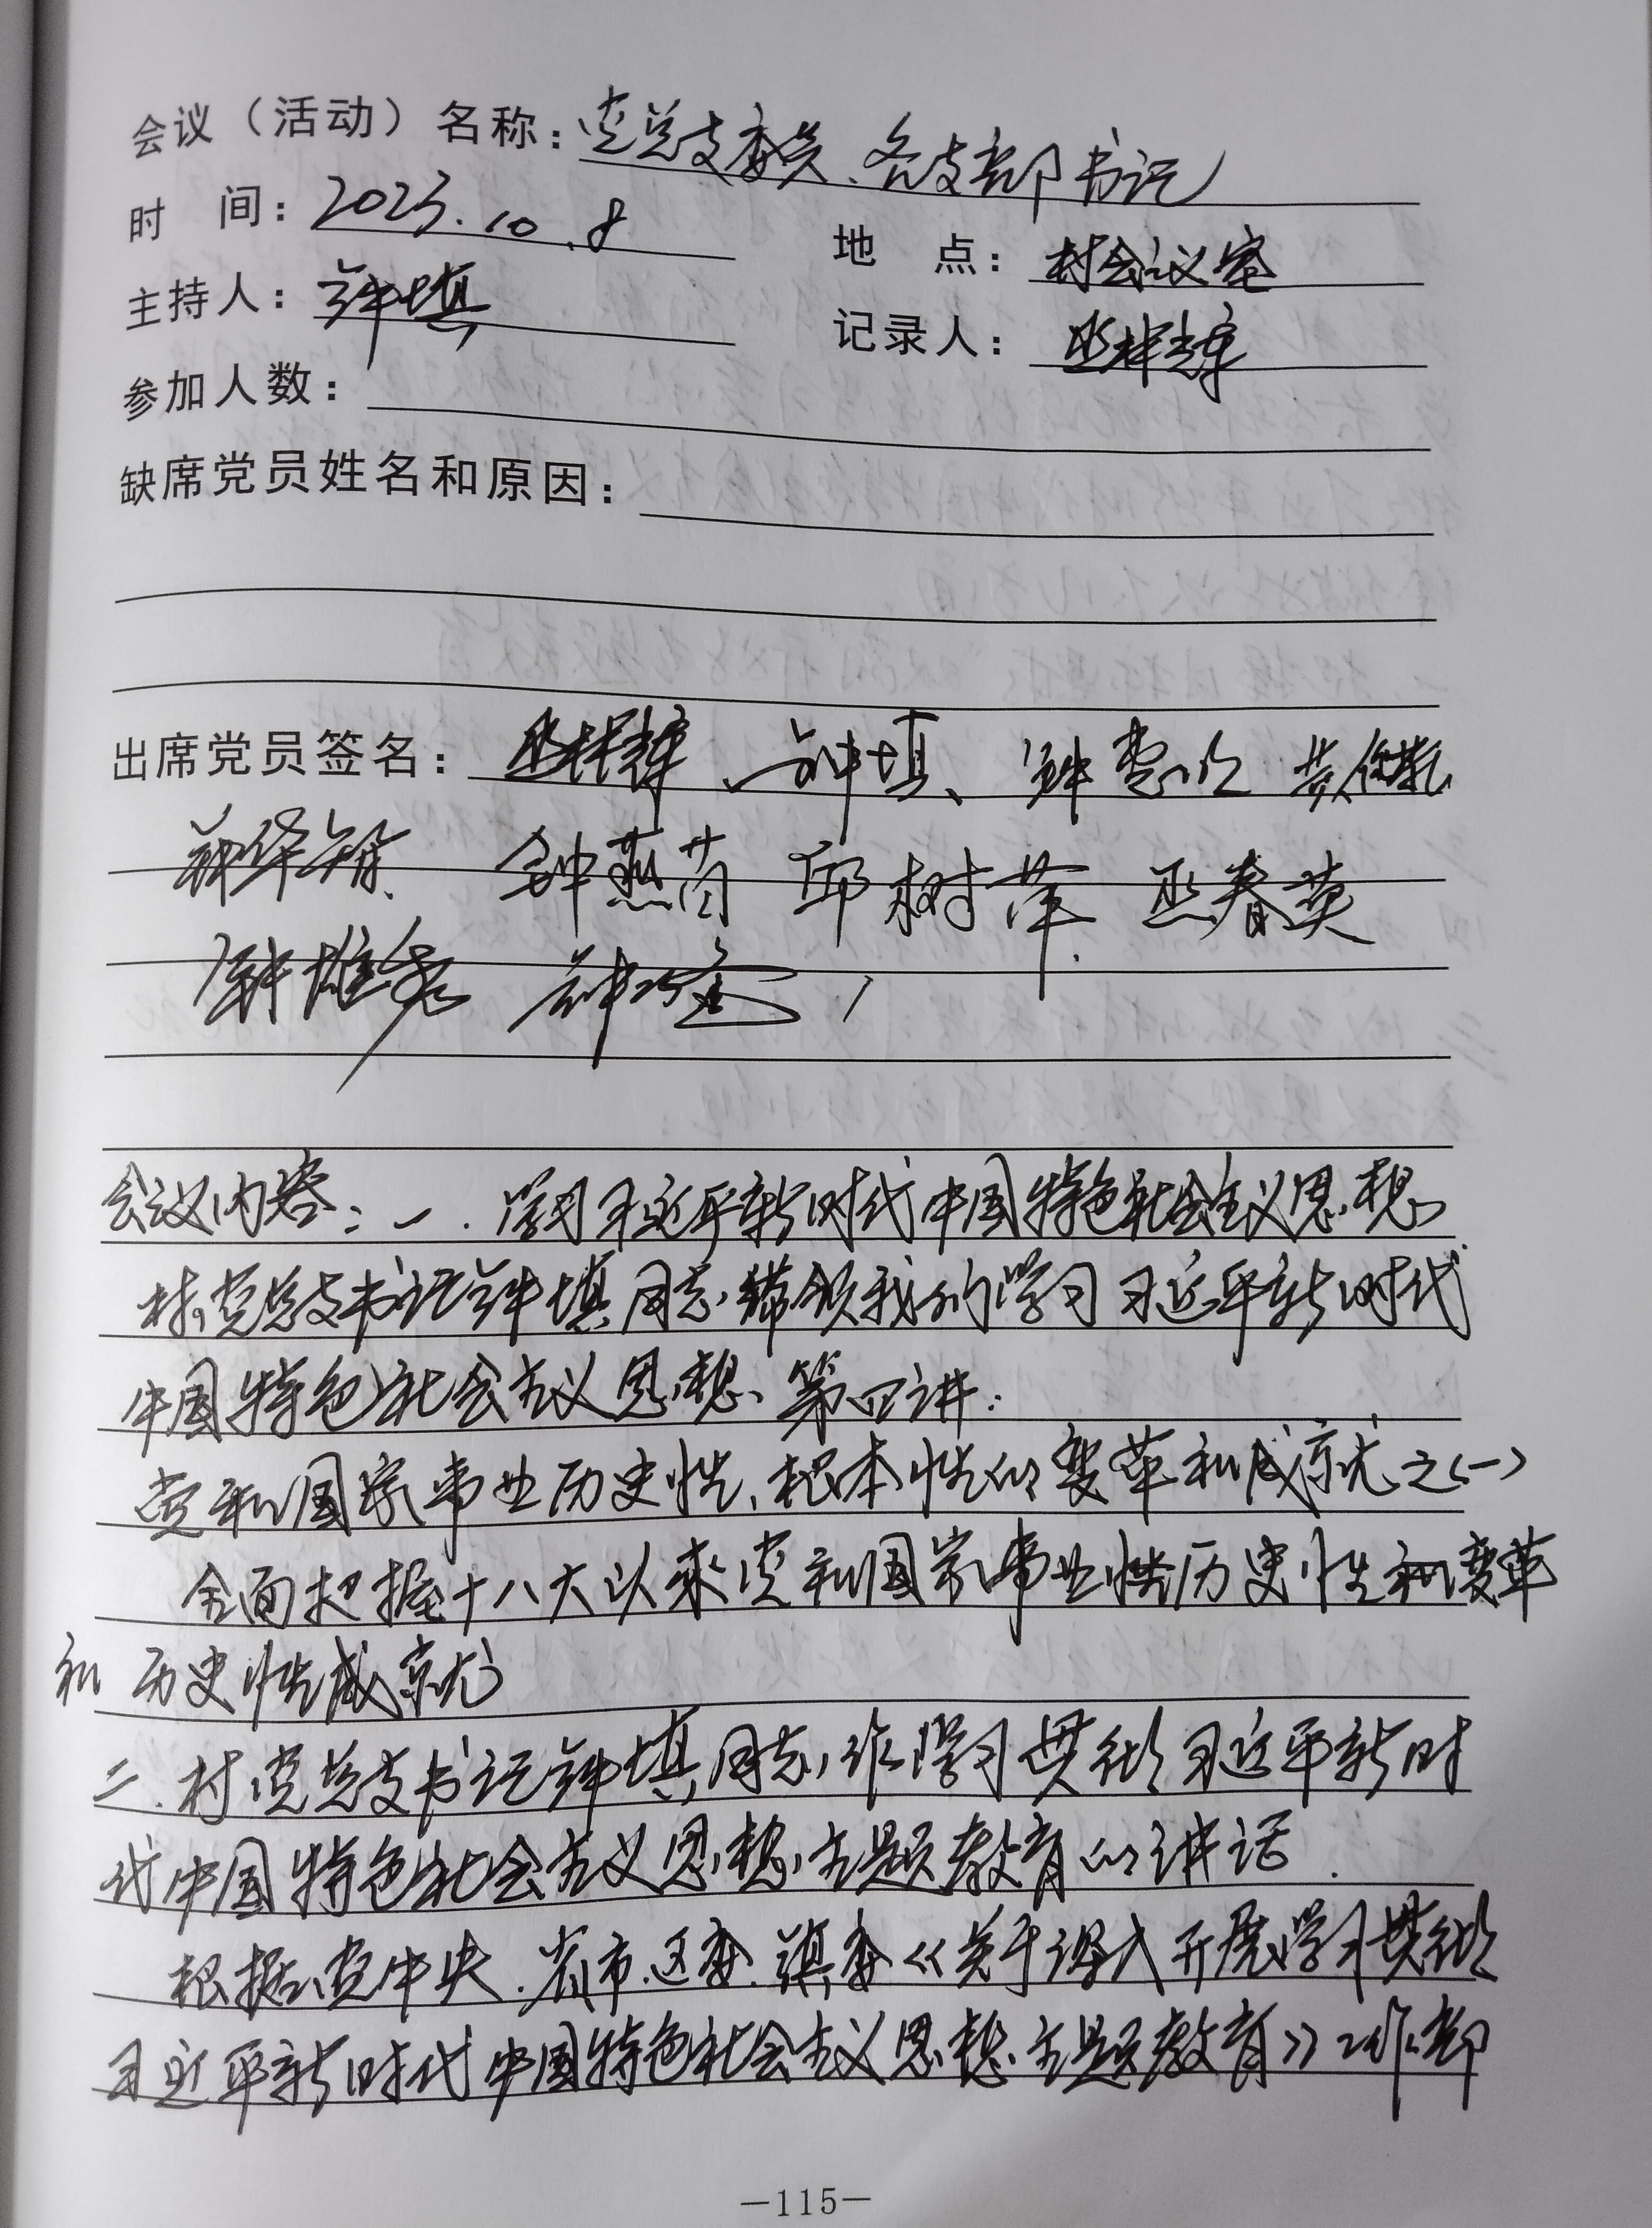 会议（活动）名称：党总支委员、各支部书记
时 间：2023.10.8 地 点：村会议室
主持人：钟填 记录人：巫祥辉
参加人数：
缺席党员姓名和原因：
出席党员签名：巫祥辉、钟填、钟
钟燕 邱树萍 巫春英
钟雄 钟
会议内容：一．学习习近平新时代中国特色社会主义思想
村党总支书记钟填同志带领我们学习习近平新时代
中国特色社会主义思想、第四讲：
党和国家事业历史性、根本性的变革和成就之（一）
全面把握十八大以来党和国家事业性历史性和变革
和历史性成就
二．村党总支书记钟填同志作学习贯彻习近平新时
代中国特色社会主义思想主题教育的讲话．
根据党中央．省市．区委．镇委《关于深入开展学习贯彻
习近平新时代中国特色社会主义思想主题教育》工作部
—115—